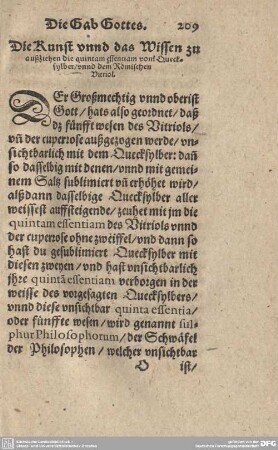 Die Gab Gottes. 209
Die Kunst vnnd das Wissen zu
außziehen die quintam essentiam vom Queck-
sylber/vnnd dem Römischen
Vitriol.
DEr Großmechtig vnnd oberist
Gott/hats also geordnet/daß
dz fünfft wesen des Vitriols/
vñ der cuperrose außgezogen werde/vn-
sichtbarlich mit dem Quecksylber: dañ
so dasselbig mit denen/vnnd mit gemei-
nem Saltz sublimiert vñ erhöhet wird/
alßdann dasselbige Quecksylber aller
weissest auffsteigende/zeuhet mit jm die
quintam essentiam des Vitriols vnnd
der cuperrose ohne zweiffel/vnd dann so
hast du gesublimiert Quecksylber mit
diesen zweyen/vnd hast vnsichtbarlich
jhre quintā essentiam verborgen in der
weisse des vorgesagten Quecksylbers/
vnnd diese vnsichtbar quinta essentia/
oder fünffte wesen/wird genannt sul-
phur Philosophorum/der Schwäfel
der Philosophen/welcher vnsichtbar
O ist/